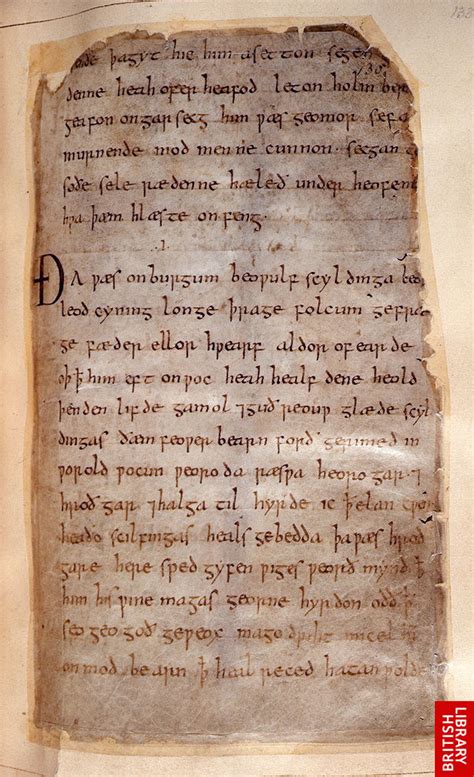 133
þagyt hie him asetton segen
denne heah ofer heafod leton holm ber
geafon on garsecg him wæs geomor sefa
murnende mod men ne cunnon secgan
soðe sele rædenne hæleð under heofenum
hwa þæm hlæste onfeng.
Ða wæs on burgum beowulf scyldinga
leod cyning longe þrage folcum gefræ
ge fæder ellor hwearf aldor of earde
oþ ꝥ him eft onwoc heah healfdene heold
þenden lifde gamol ⁊ guðreouw glæde scyl
dingas ðæm feower bearn forð gerimed in
worold wocun weoroda ræswa heorogar ⁊
hroðgar ⁊ halga til hyrde ic ꝥ elan cwen
heaðo scilfingas heals gebedda þa wæs hroð
gare here sped gyfen wiges weorð mynd ꝥ
him his wine magas georne hyrdon oðð ꝥ
seo geogoð geweox mago driht micel
on mod bearn ꝥ heal reced hatan wolde
BRITISH
LIBRARY